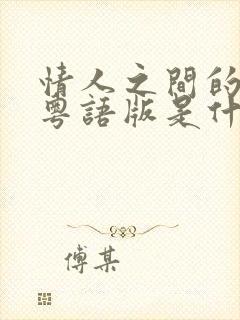 情人之間的
粵語版是什
傅某